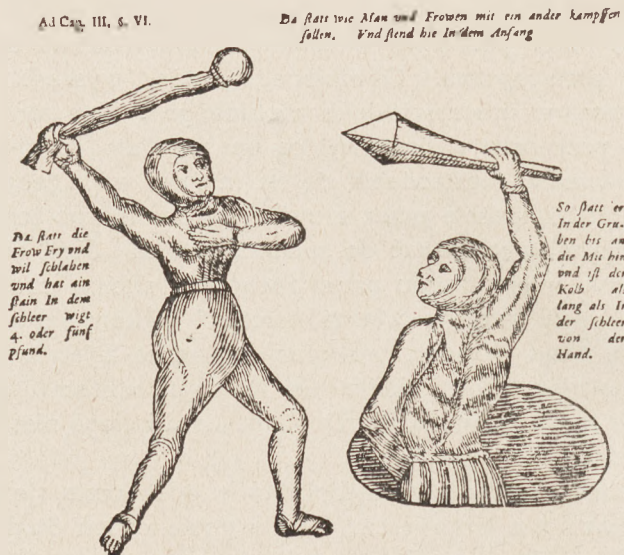 Ad Cap. III, §. VI.
Da statt wie Man und Frowen mit ein ander kampffen
sollen. Vnd stend hie In dem Anfang
Da statt die
Frow Fry vnd
wil schlahen
vnd hat ain
stain In dem
schleer wigt
4. oder fünf
pfund.
So statt er
In der Gru-
ben bis an
die Mit hin
vnd ist der
Kolb als
lang als Ir
der schleer
von der
Hand.